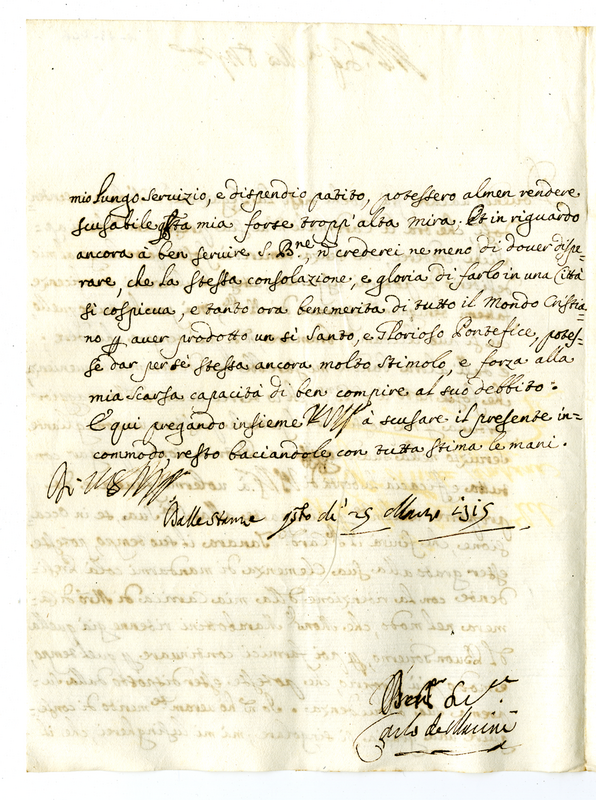 mio lungo servizio, e dispendio patito, potessero almen rendere
scusabile qsta mia forse tropp'alta mira. Et in riguardo
ancora à ben servire S. Bne, ñ crederei ne meno di dover dispe=
rare, che la stessa consolazione, e gloria di farlo in una Città
si cospicua, e tanto ora benemerita di tutto il Mondo Cristia=
no p aver prodotto un si Santo, e Glorioso Pontefice, potes=
se dar per sè stessa ancora molto stimolo, e forza alla
mia scarsa capacità di ben compire al suo debbito.
E qui pregando insieme à scusare il presente in=
commodo, resto baciandole con tutta stima le mani.
Di
Dalle Stanze qsto di 25 Marzo
Carlo de Marini